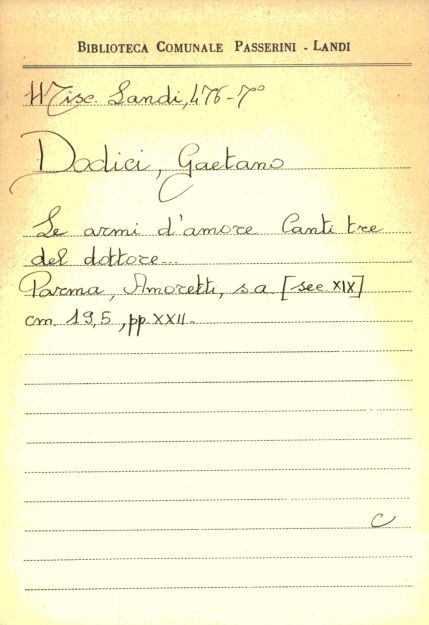 BIBLIOTECA COMUNALE PASSERINI - LANDI
Misc. Landi, 476-7°
Dodici, Gaetano
Le armi d'amore Canti tre
del dottore...
Parma, Amoretti, s a [sec XIX]
cm. 19,5, pp. XXII.
C